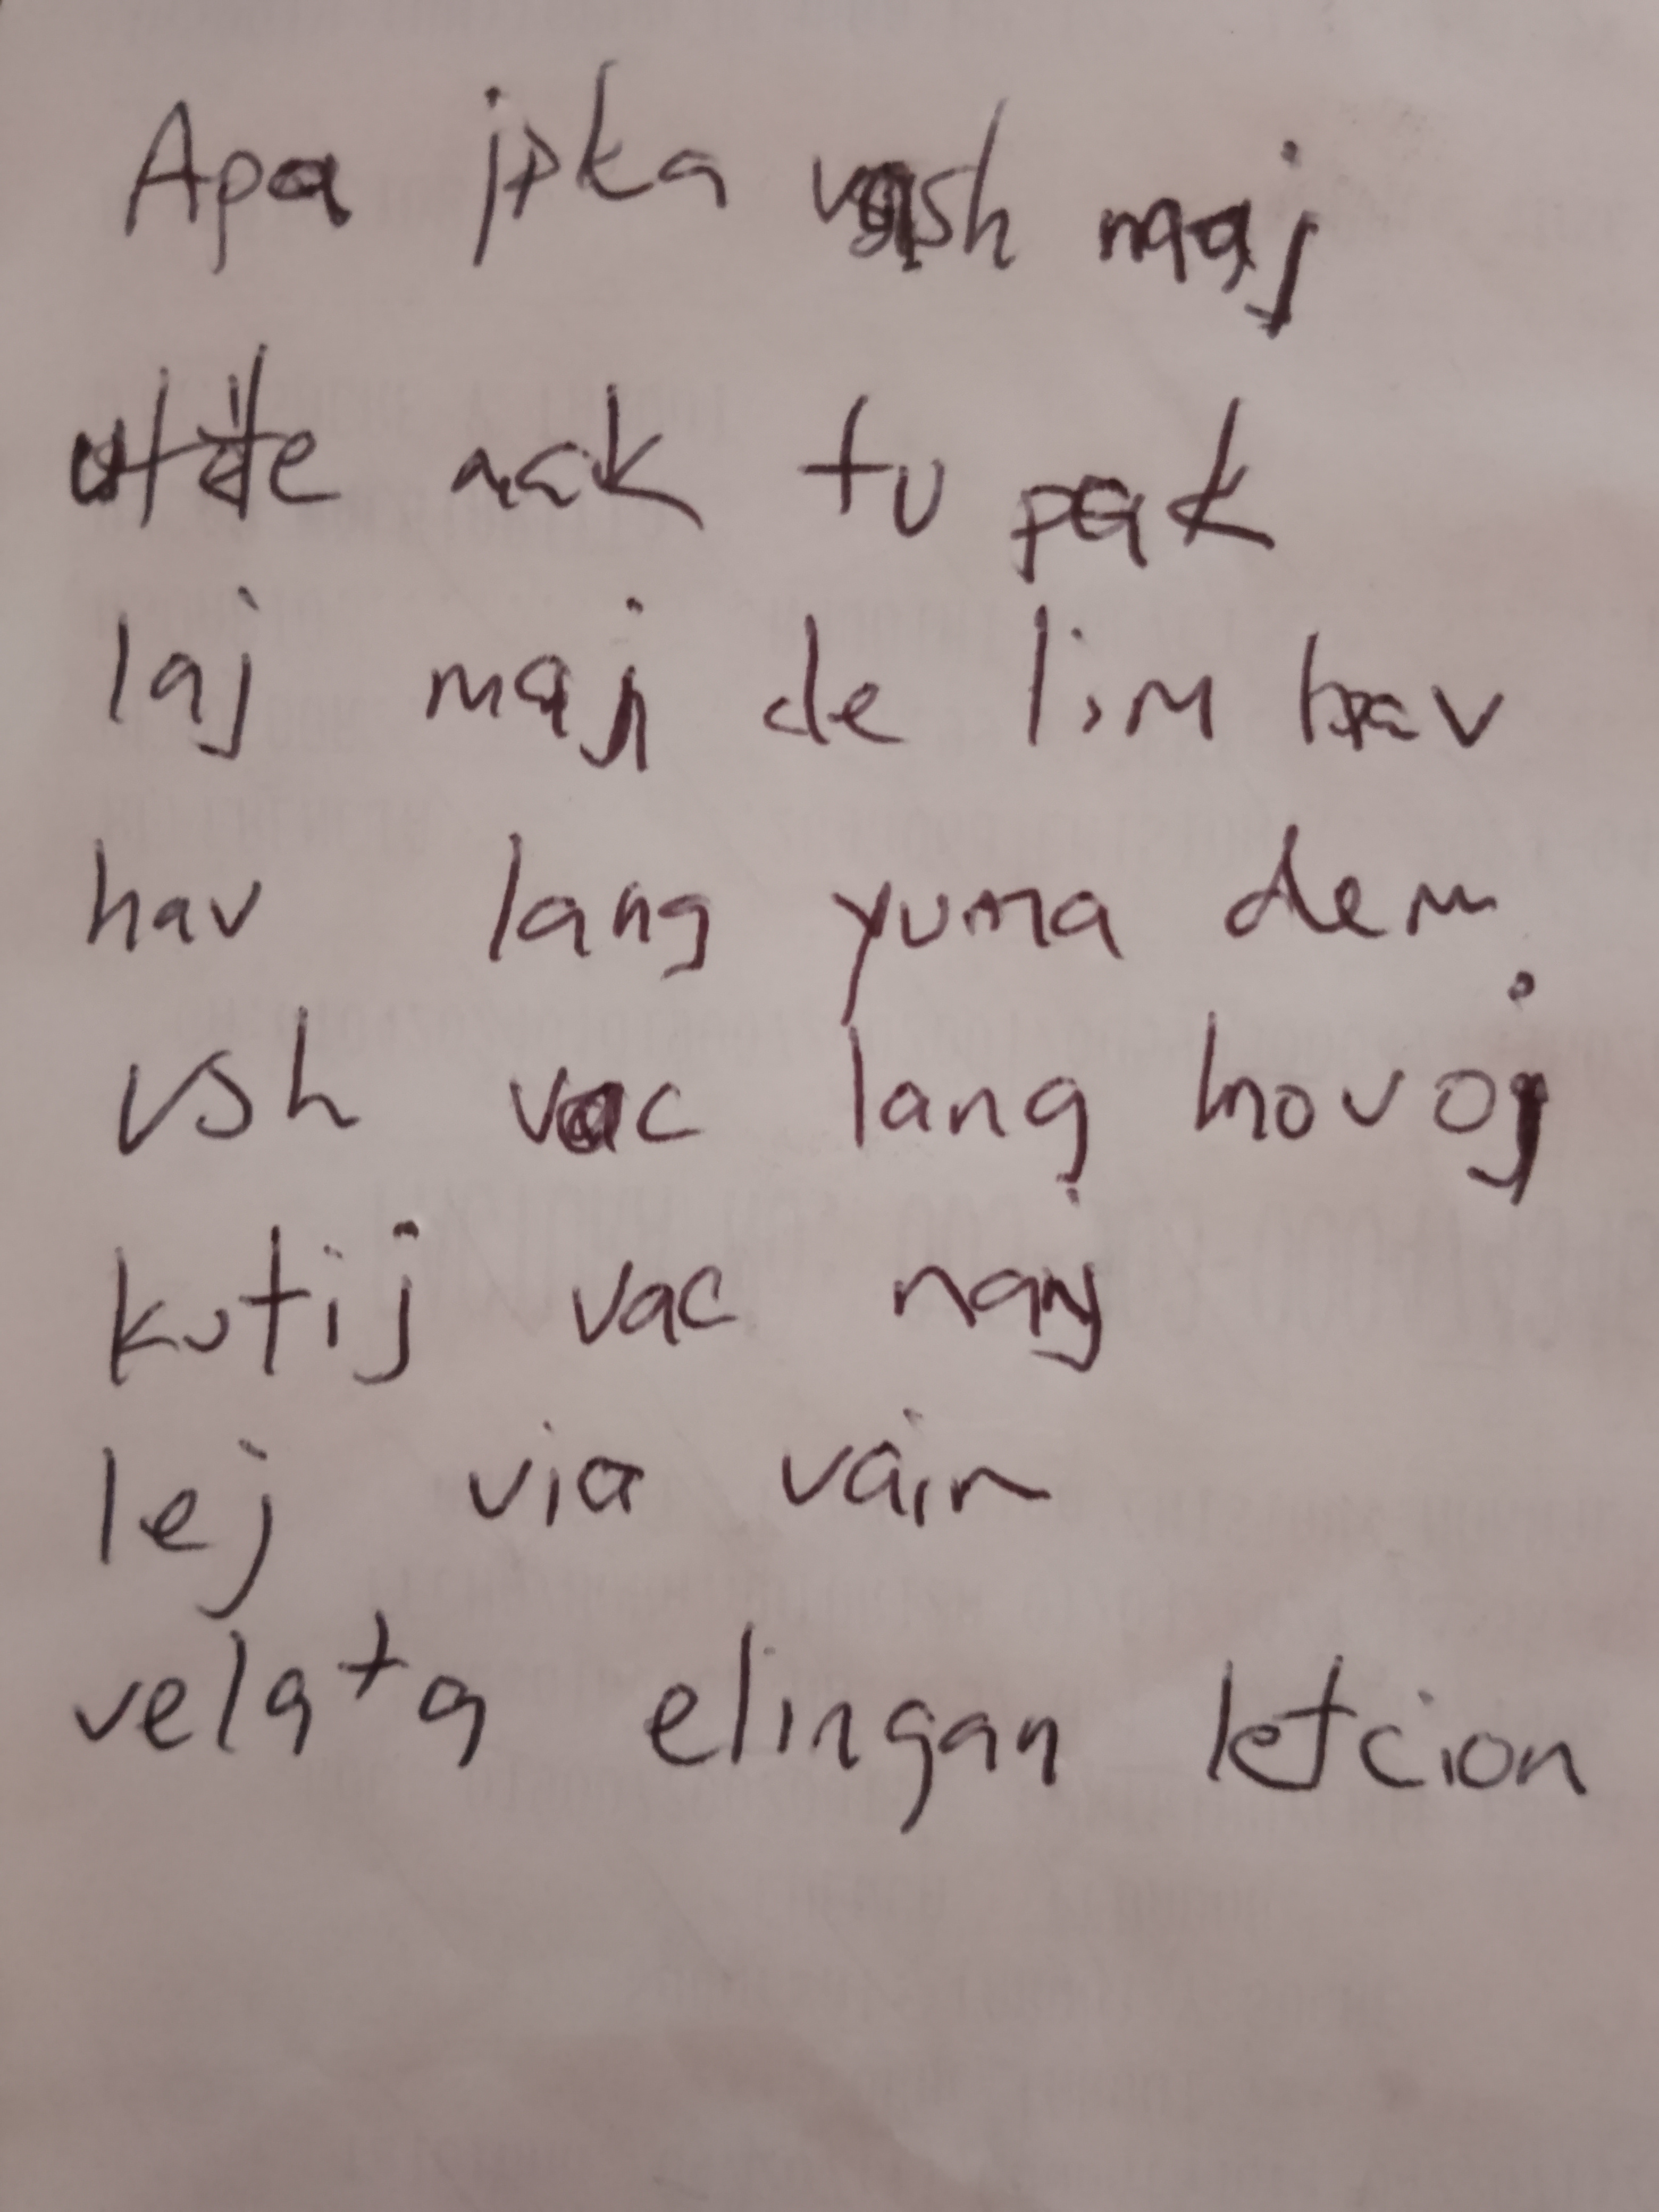 Apa jpka vash maj
nak tu pak
laj maj de lim hav
hav lang yuma dem
vsh vac lang hovoj
kutij vac nanj
lej via vain
velata elingan letcion